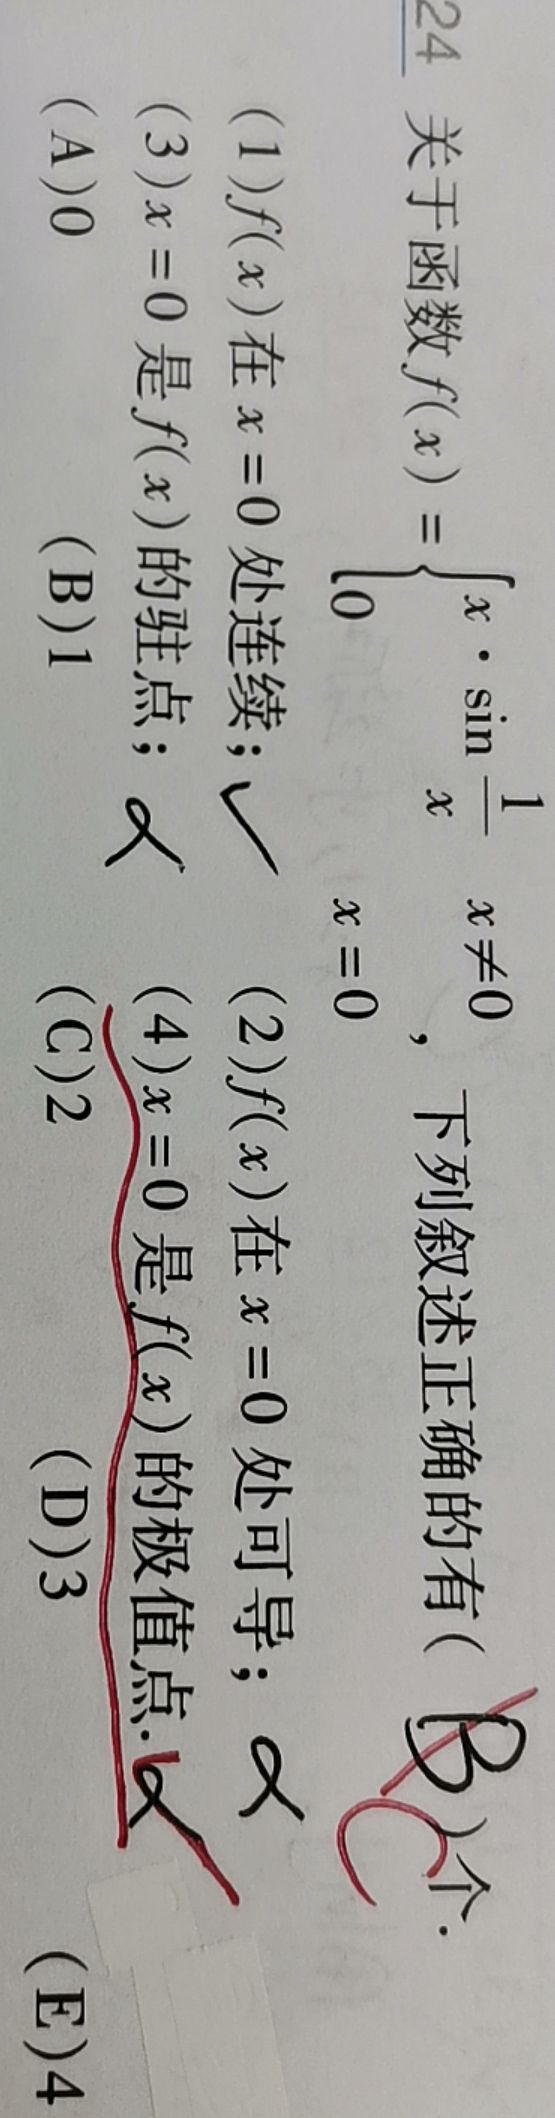 24 关于函数f(x)={x·sin 1/x x≠0
0 x=0 , 下列叙述正确的有( B C )个.
(1)f(x)在x=0处连续; ✓ (2)f(x)在x=0处可导; ×
(3)x=0是f(x)的驻点; × (4)x=0是f(x)的极值点. ×
(A)0 (B)1 (C)2 (D)3 (E)4